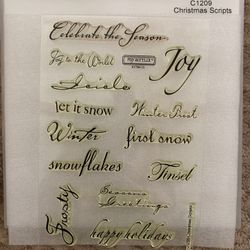 C1209
Christmas Scripts
Celebrate the Season
Joy to the World
Joy
Icicle
let it snow
Winter Post
Winter
first snow
snowflakes
Tinsel
Frosty
Seasons
Greetings
happy holidays